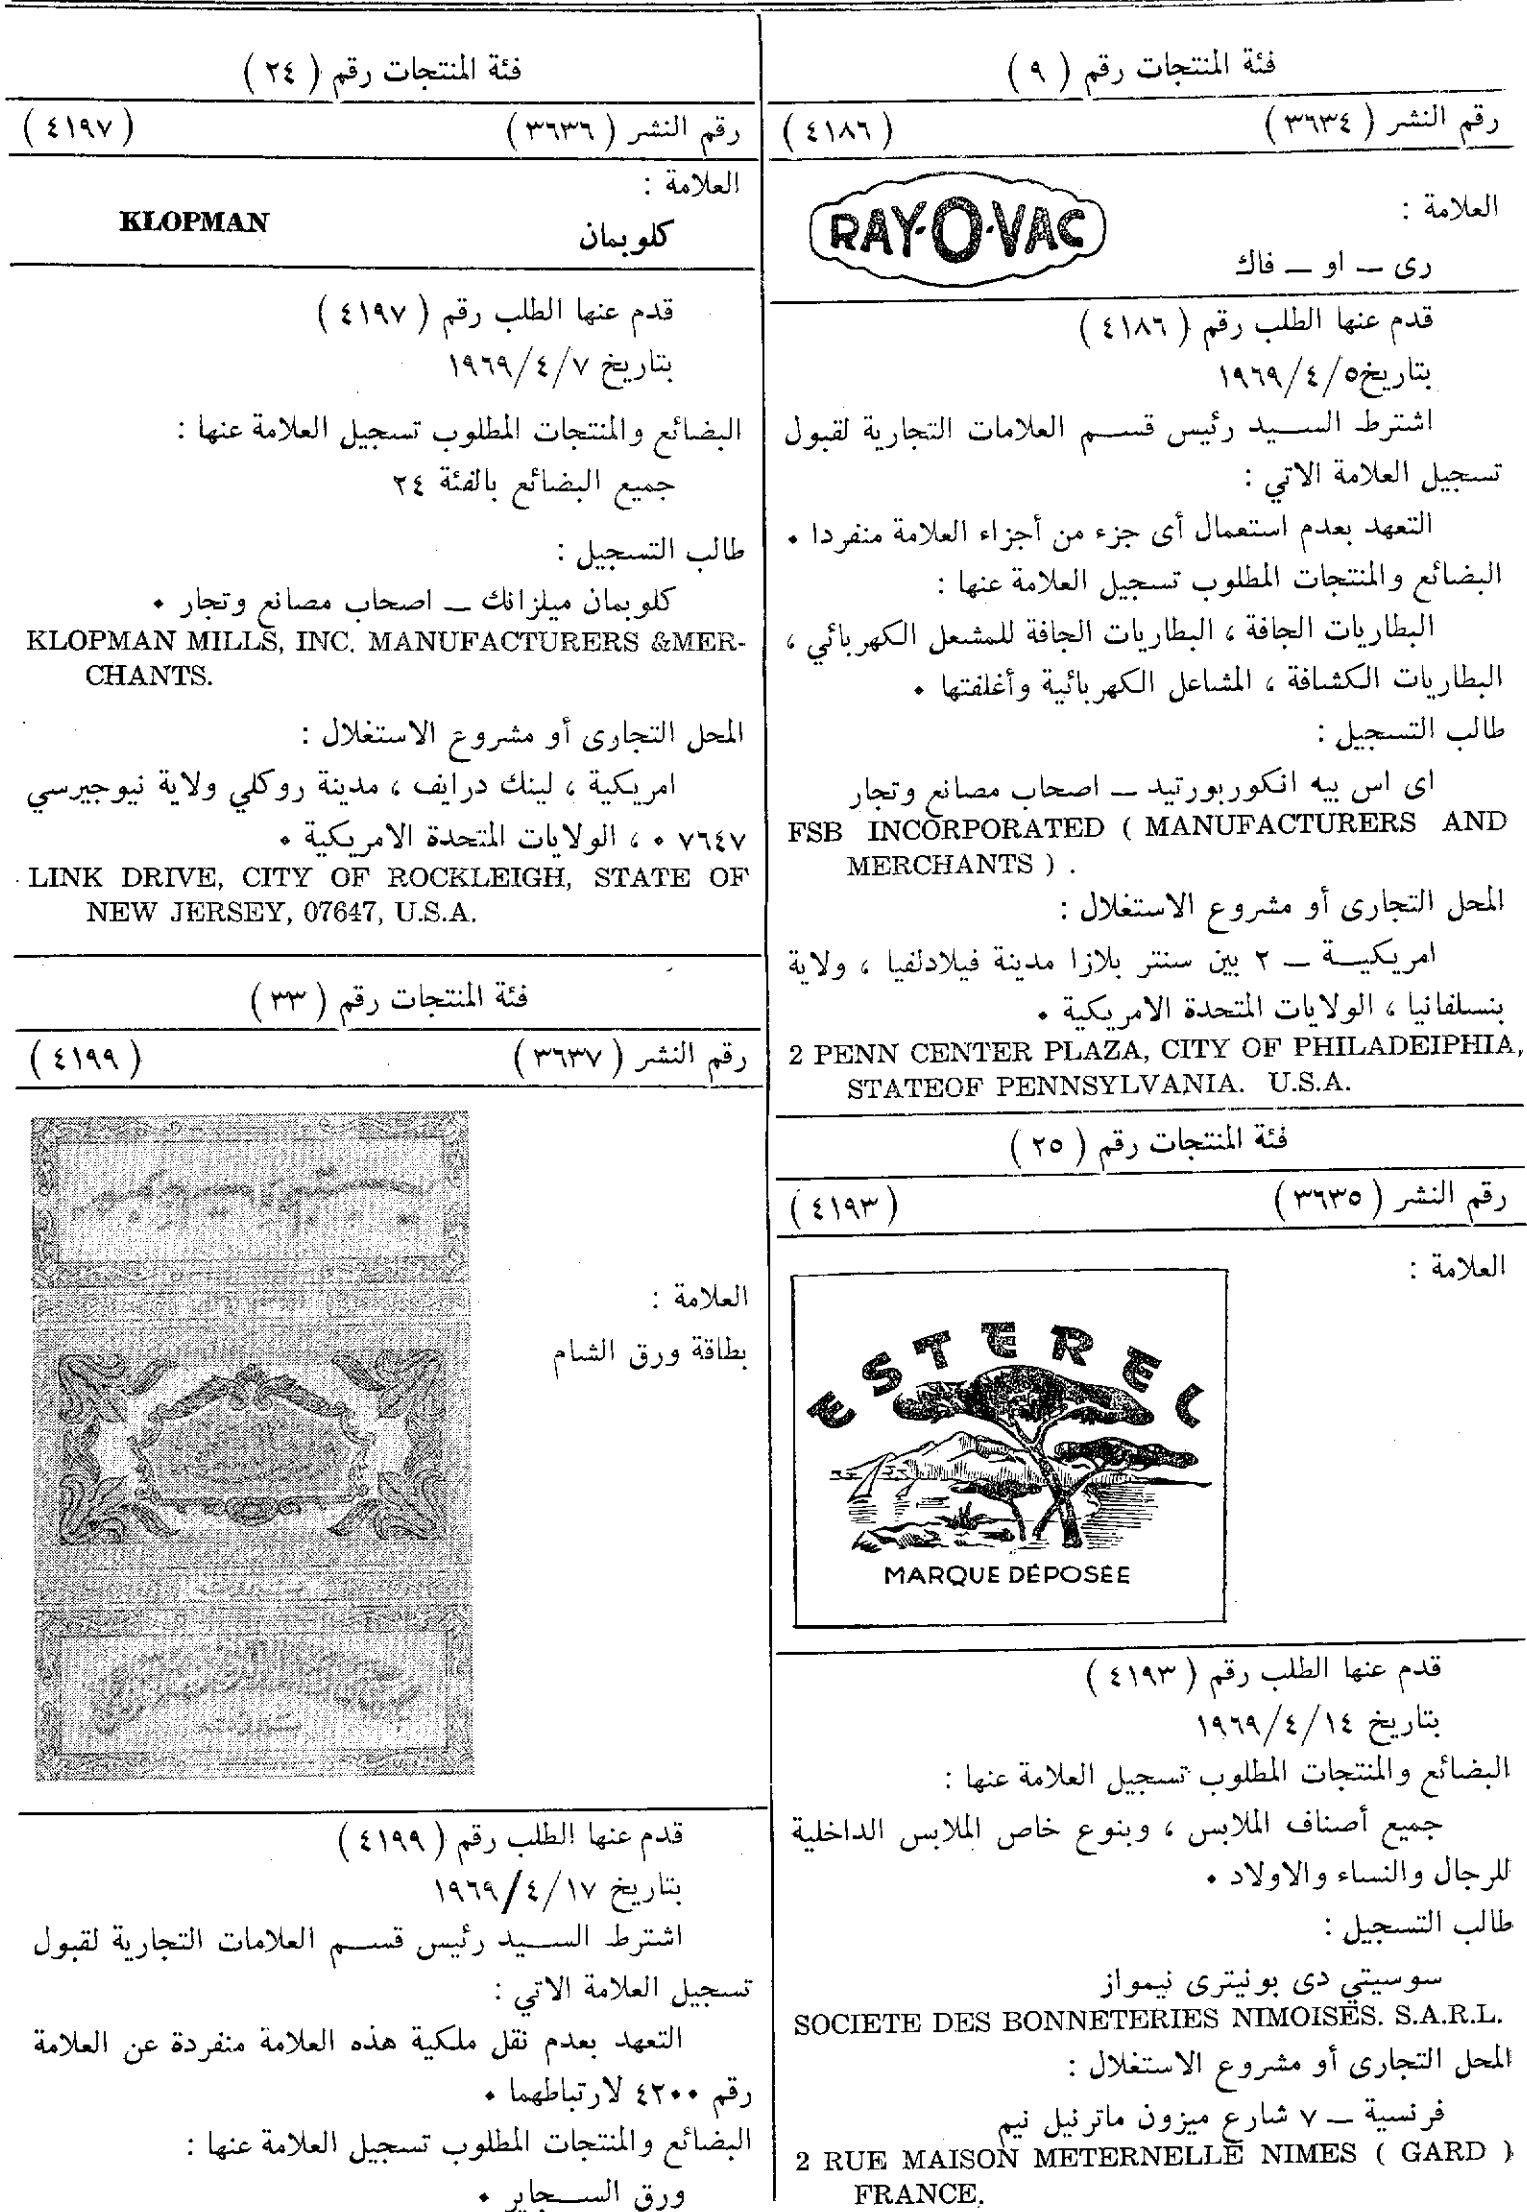 فئة المنتجات رقم ( ٩ )
رقم النشر ( ٣٦٣٤ ) ( ٤١٨٦ )
العلامة :
RAY·O·VAC
رى ــ او ــ فاك
قدم عنها الطلب رقم ( ٤١٨٦ )
بتاريخ ١٩٦٩/٤/٥
اشترط السيد رئيس قسم العلامات التجارية لقبول
تسجيل العلامة الاتي :
التعهد بعدم استعمال أى جزء من أجزاء العلامة منفردا ٠
البضائع والمنتجات المطلوب تسجيل العلامة عنها :
البطاريات الجافة ، البطاريات الجافة للمشعل الكهربائي ،
البطاريات الكشافة ، المشاعل الكهربائية وأغلفتها ٠
طالب التسجيل :
اى اس بيه انكوربورتيد ــ اصحاب مصانع وتجار
FSB INCORPORATED ( MANUFACTURERS AND
MERCHANTS ) .
المحل التجارى أو مشروع الاستغلال :
امريكية ــ ٢ بين سنتر بلازا مدينة فيلادلفيا ، ولاية
بنسلفانيا ، الولايات المتحدة الامريكية ٠
2 PENN CENTER PLAZA, CITY OF PHILADEIPHIA,
STATEOF PENNSYLVANIA. U.S.A.
فئة المنتجات رقم ( ٢٥ )
رقم النشر ( ٣٦٣٥ ) ( ٤١٩٣ )
العلامة :
ESTEREL
MARQUE DÉPOSÉE
قدم عنها الطلب رقم ( ٤١٩٣ )
بتاريخ ١٩٦٩/٤/١٤
البضائع والمنتجات المطلوب تسجيل العلامة عنها :
جميع أصناف الملابس ، وبنوع خاص الملابس الداخلية
للرجال والنساء والاولاد ٠
طالب التسجيل :
سوسيتي دى بونيترى نيمواز
SOCIETE DES BONNETERIES NIMOISES. S.A.R.L.
المحل التجارى أو مشروع الاستغلال :
فرنسية ــ ٧ شارع ميزون ماترنيل نيم
2 RUE MAISON METERNELLE NIMES ( GARD )
FRANCE.
فئة المنتجات رقم ( ٢٤ )
رقم النشر ( ٣٦٣٦ ) ( ٤١٩٧ )
العلامة :
كلوبمان KLOPMAN
قدم عنها الطلب رقم ( ٤١٩٧ )
بتاريخ ١٩٦٩/٤/٧
البضائع والمنتجات المطلوب تسجيل العلامة عنها :
جميع البضائع بالفئة ٢٤
طالب التسجيل :
كلوبمان ميلزانك ــ اصحاب مصانع وتجار ٠
KLOPMAN MILLS, INC. MANUFACTURERS &MER-
CHANTS.
المحل التجارى أو مشروع الاستغلال :
امريكية ، لينك درايف ، مدينة روكلي ولاية نيوجيرسي
٧٦٤٧ ٠ ، الولايات المتحدة الامريكية ٠
LINK DRIVE, CITY OF ROCKLEIGH, STATE OF
NEW JERSEY, 07647, U.S.A.
فئة المنتجات رقم ( ٣٣ )
رقم النشر ( ٣٦٣٧ ) ( ٤١٩٩ )
العلامة :
بطاقة ورق الشام
قدم عنها الطلب رقم ( ٤١٩٩ )
بتاريخ ١٩٦٩/٤/١٧
اشترط السيد رئيس قسم العلامات التجارية لقبول
تسجيل العلامة الاتي :
التعهد بعدم نقل ملكية هذه العلامة منفردة عن العلامة
رقم ٤٢٠٠ لارتباطهما ٠
البضائع والمنتجات المطلوب تسجيل العلامة عنها :
ورق السجاير ٠